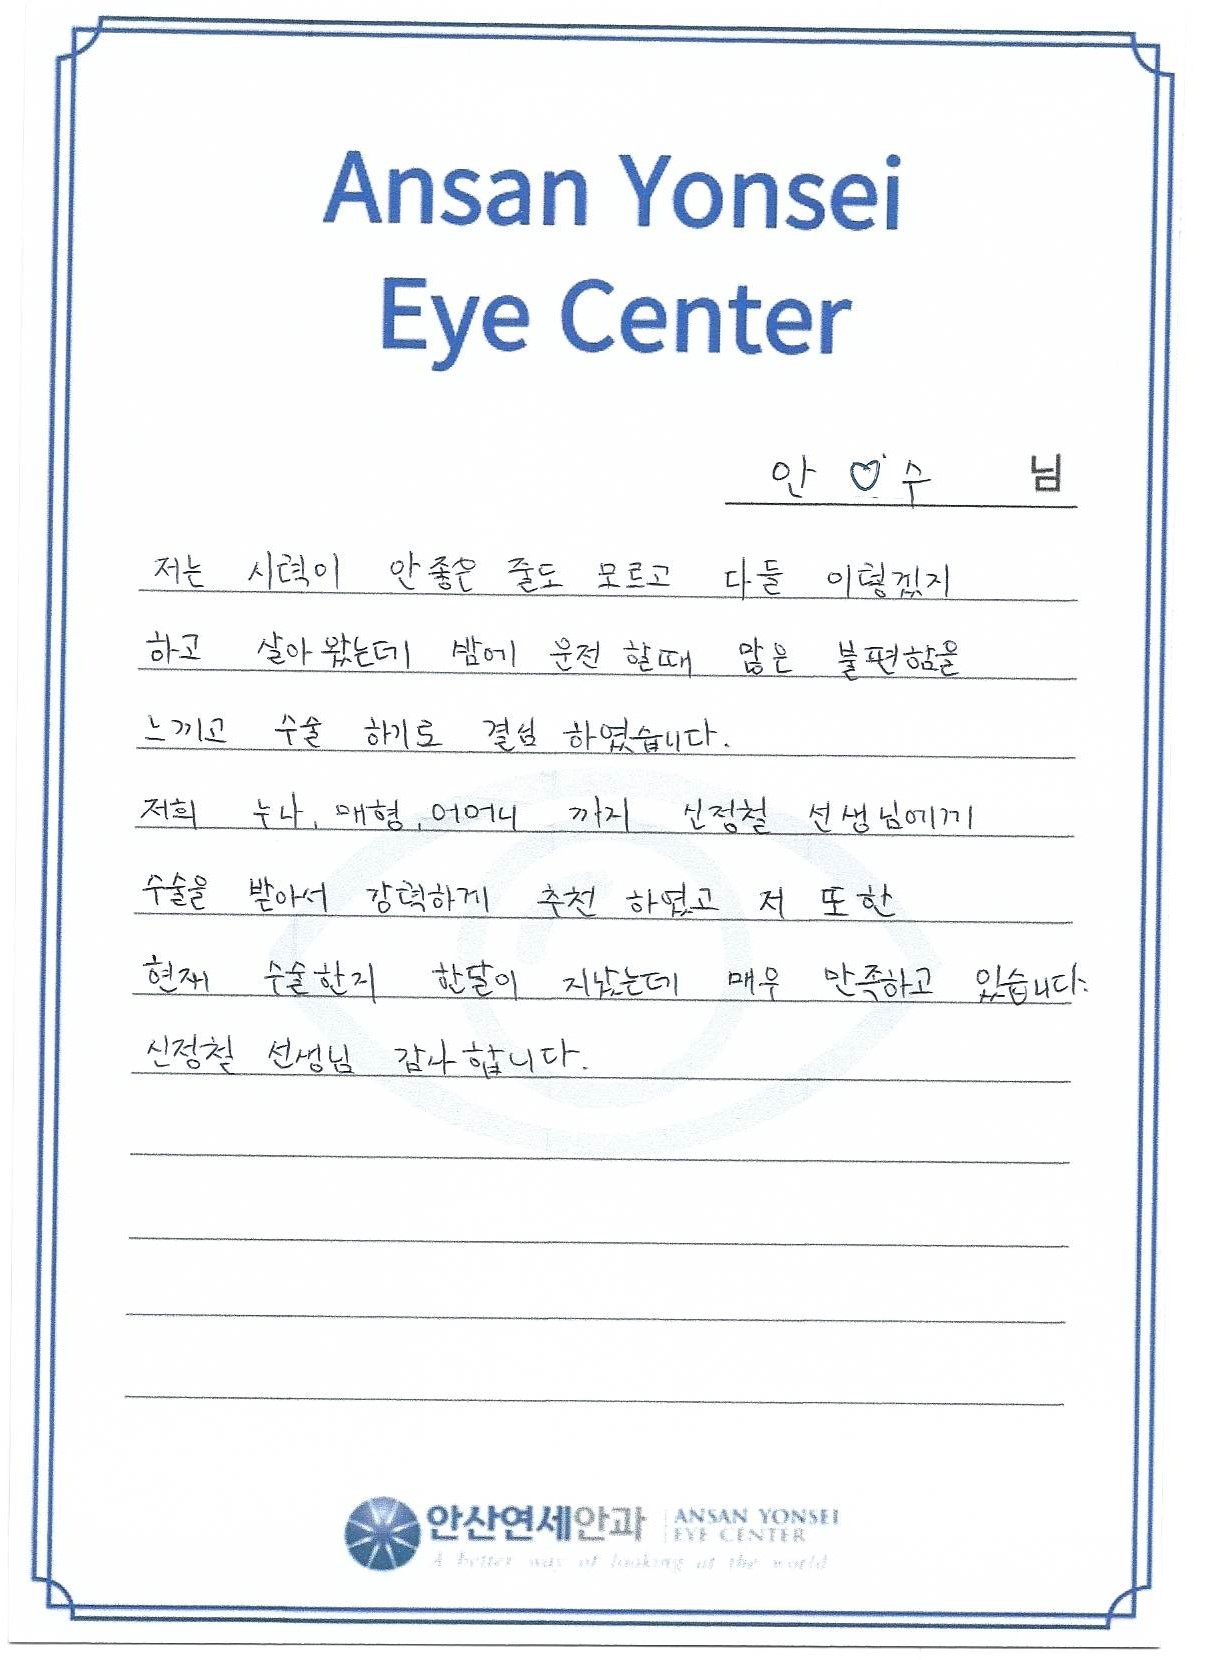 Ansan Yonsei
Eye Center
안 ♡ 수 님
저는 시력이 안좋은 줄도 모르고 다들 이렇겠지
하고 살아왔는데 밤에 운전 할때 많은 불편함을
느끼고 수술 하기로 결심 하였습니다.
저희 누나, 매형, 어머니 까지 신정철 선생님에게
수술을 받아서 강력하게 추천 하였고 저 또한
현재 수술한지 한달이 지났는데 매우 만족하고 있습니다.
신정철 선생님 감사합니다.
안산연세안과 ANSAN YONSEI
EYE CENTER
A better way of looking at the world